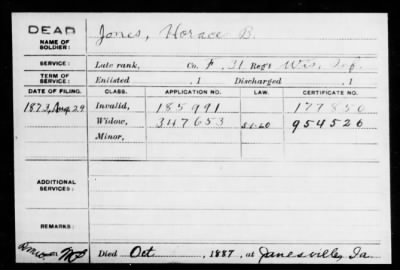 DEAD
NAME OF SOLDIER: Jones, Horace B.
SERVICE: Late rank, Co. F, 31 Reg't Wis. Inf.
TERM OF SERVICE: Enlisted , 1 Discharged , 1
DATE OF FILING. CLASS. APPLICATION NO. LAW. CERTIFICATE NO.
1873, Aug 29 Invalid, 185991 177850
Widow, 347653 954526
Minor,
ADDITIONAL SERVICES:
REMARKS:
Died Oct , 1887, at Janesville, Ia